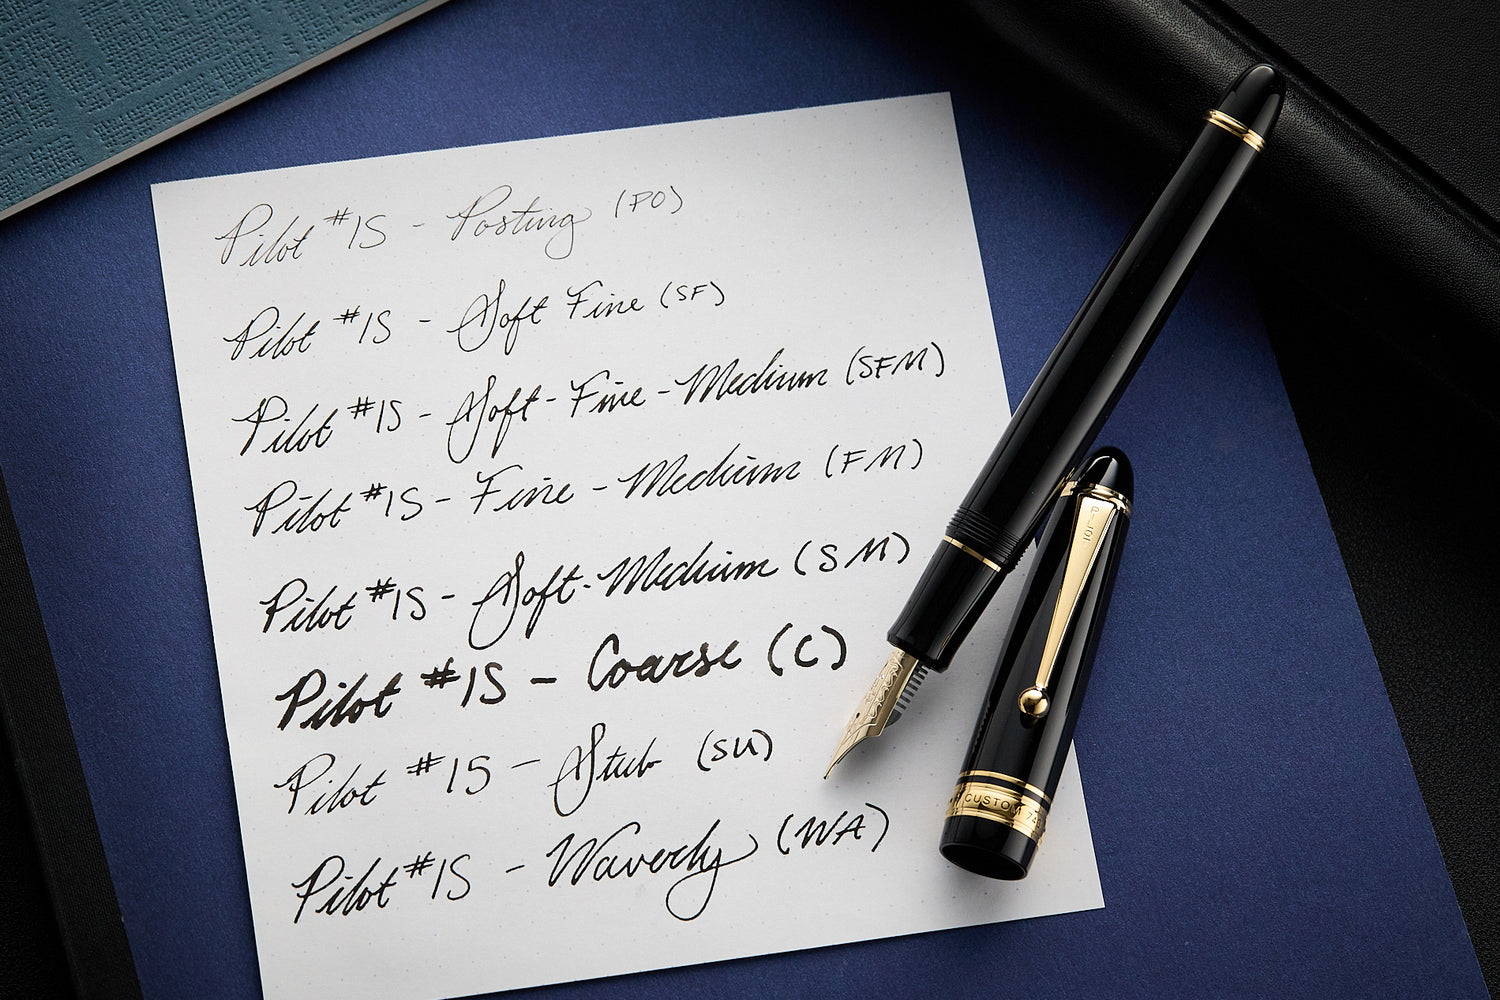 Pilot #15 - Posting (PO)
Pilot #15 - Soft Fine (SF)
Pilot #15 - Soft-Fine-Medium (SFM)
Pilot #15 - Fine-Medium (FM)
Pilot #15 - Soft-Medium (SM)
Pilot #15 - Coarse (C)
Pilot #15 - Stub (SU)
Pilot #15 - Waverly (WA)
PILOT
CUSTOM 74